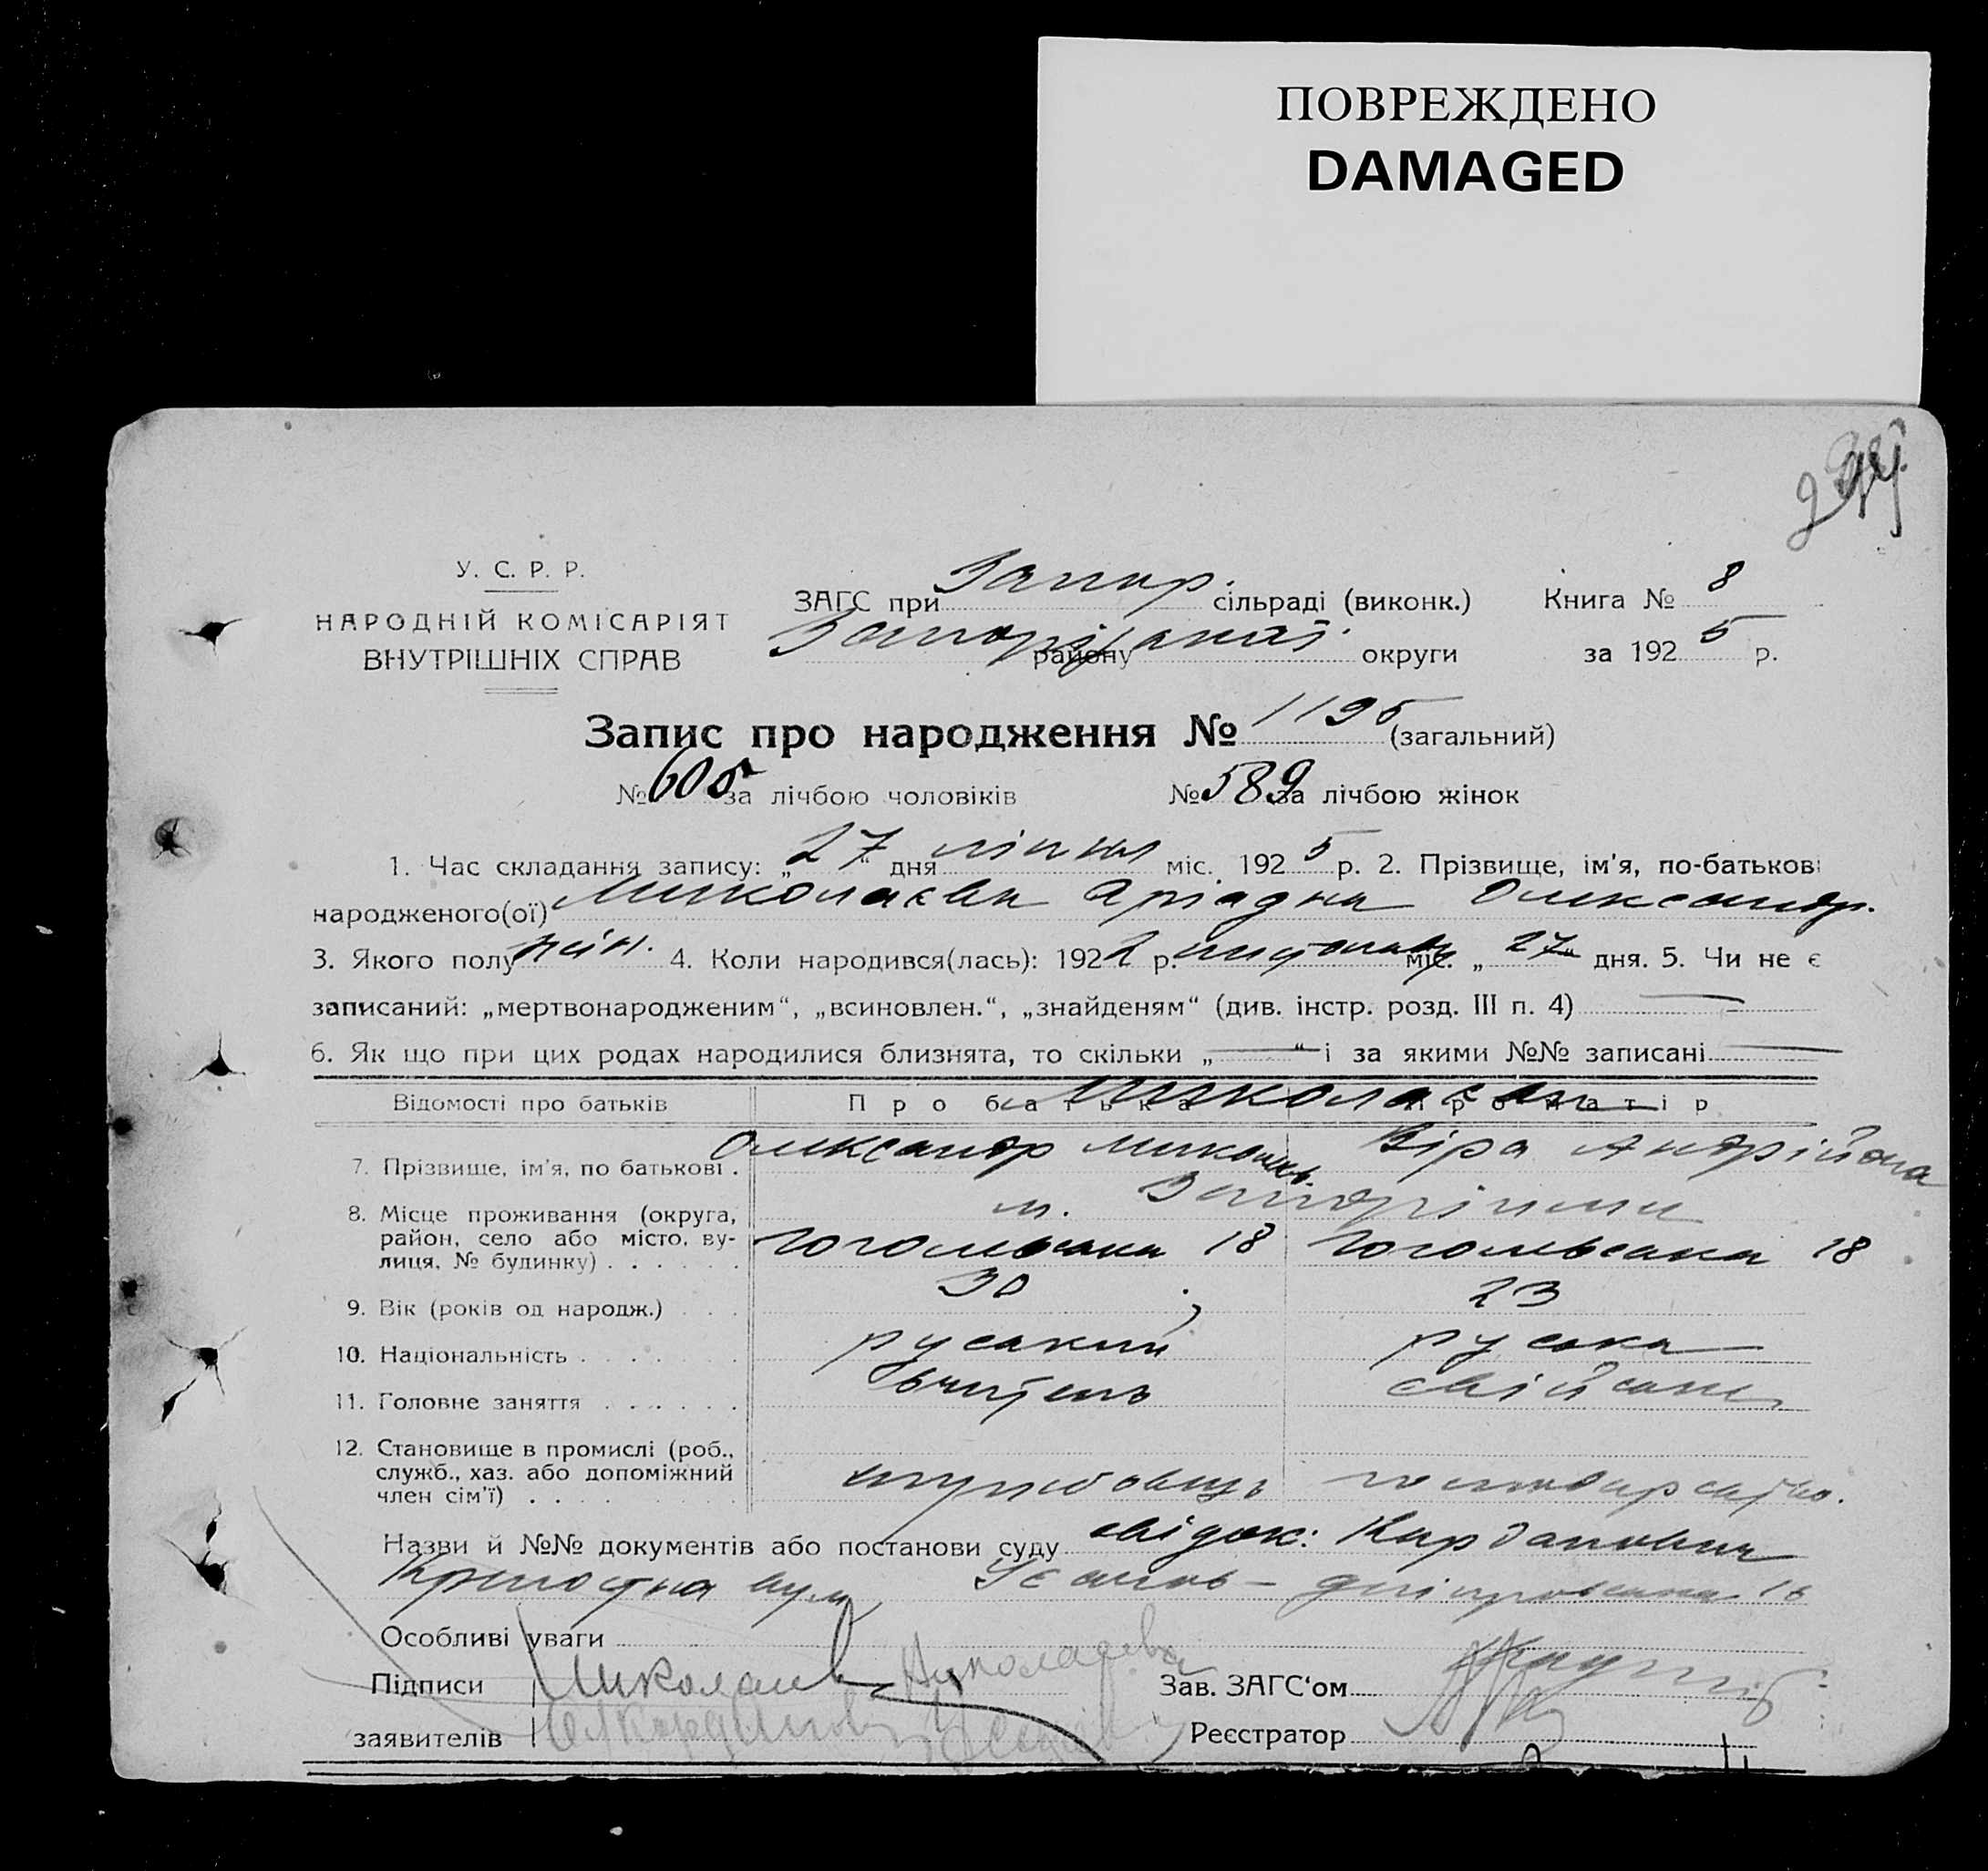 ПОВРЕЖДЕНО
DAMAGED
У. С. Р. Р.
НАРОДНІЙ КОМІСАРІЯТ
ВНУТРІШНІХ СПРАВ
ЗАГС при Запор. сільраді (виконк.)
Запорізької району округи
Книга № 8
за 1925 р.
Запис про народження № 1195 (загальний)
№ 605 за лічбою чоловіків № 589 за лічбою жінок
1. Час складання запису: „27“ дня липня міс. 1925 р. 2. Прізвище, ім'я, по-батькові
народженого(ої) Миколаєва Аріадна Олександр.
3. Якого полу жін. 4. Коли народився(лась): 1922 р. листопад міс. „27“ дня. 5. Чи не є
записаний: „мертвонародженим“, „всиновлен.“, „знайденям“ (див. інстр. розд. III п. 4) —
6. Як що при цих родах народилися близнята, то скільки „—“ і за якими №№ записані —
Відомості про батьків Про батька Про матір
Миколаєви
7. Прізвище, ім'я, по батькові . Олександр Микол. Віра Андрійовна
8. Місце проживання (округа, район, село або місто, вулиця, № будинку) . . . . . . м. Запоріжжя
Гогольська 18 Гогольська 18
9. Вік (років од народж.) . . . 30 23
10. Національність . . . . . . . руський руська
11. Головне заняття . . . . . . вчитель
12. Становище в промислі (роб., служб., хаз. або допоміжний член сім'ї) . . . . службовець господарство.
Назви й №№ документів або постанови суду свідок:
Кріпостна вул. Дніпровська 16
Особливі уваги
Підписи Миколаєв Николаева Зав. ЗАГС‘ом
заявителів Реєстратор